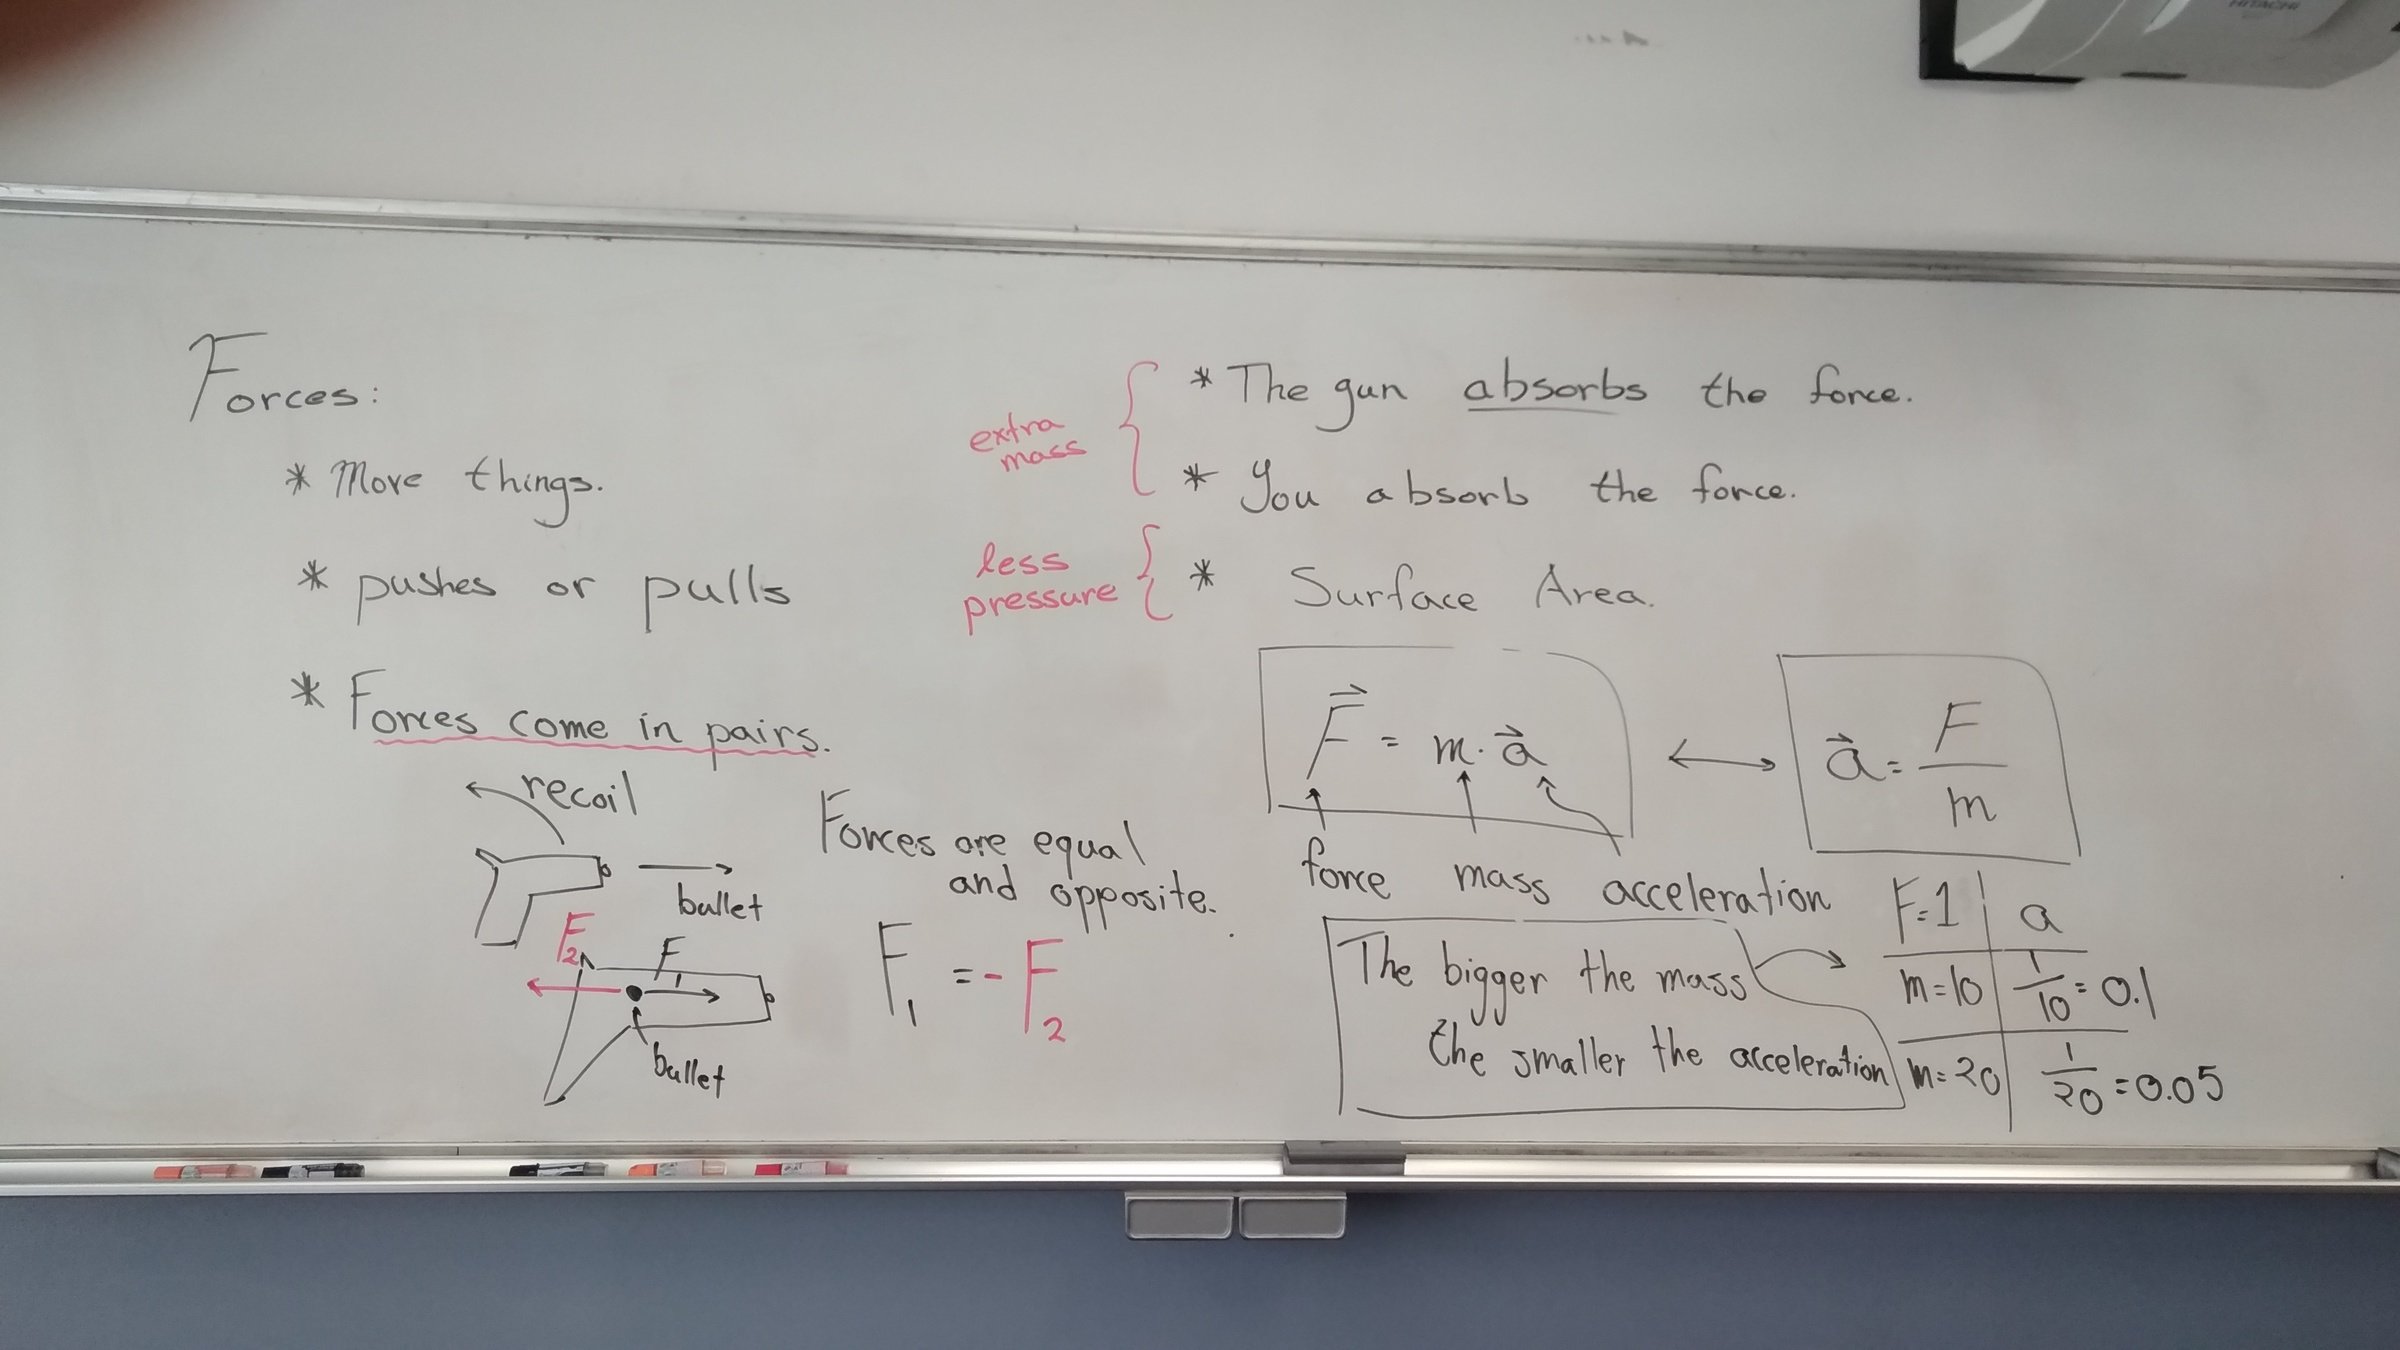 HITACHI
Forces:
* Move things.
* pushes or pulls
* Forces come in pairs.
recoil
bullet
F2
F1
bullet
Forces are equal
and opposite.
F1 = - F2
extra
mass
* The gun absorbs the force.
* You absorb the force.
less
pressure
* Surface Area.
F⃗ = m · a⃗
a⃗ = F/m
force mass acceleration
The bigger the mass
the smaller the acceleration
F=1 a
m=10 1/10 = 0.1
m=20 1/20 = 0.05